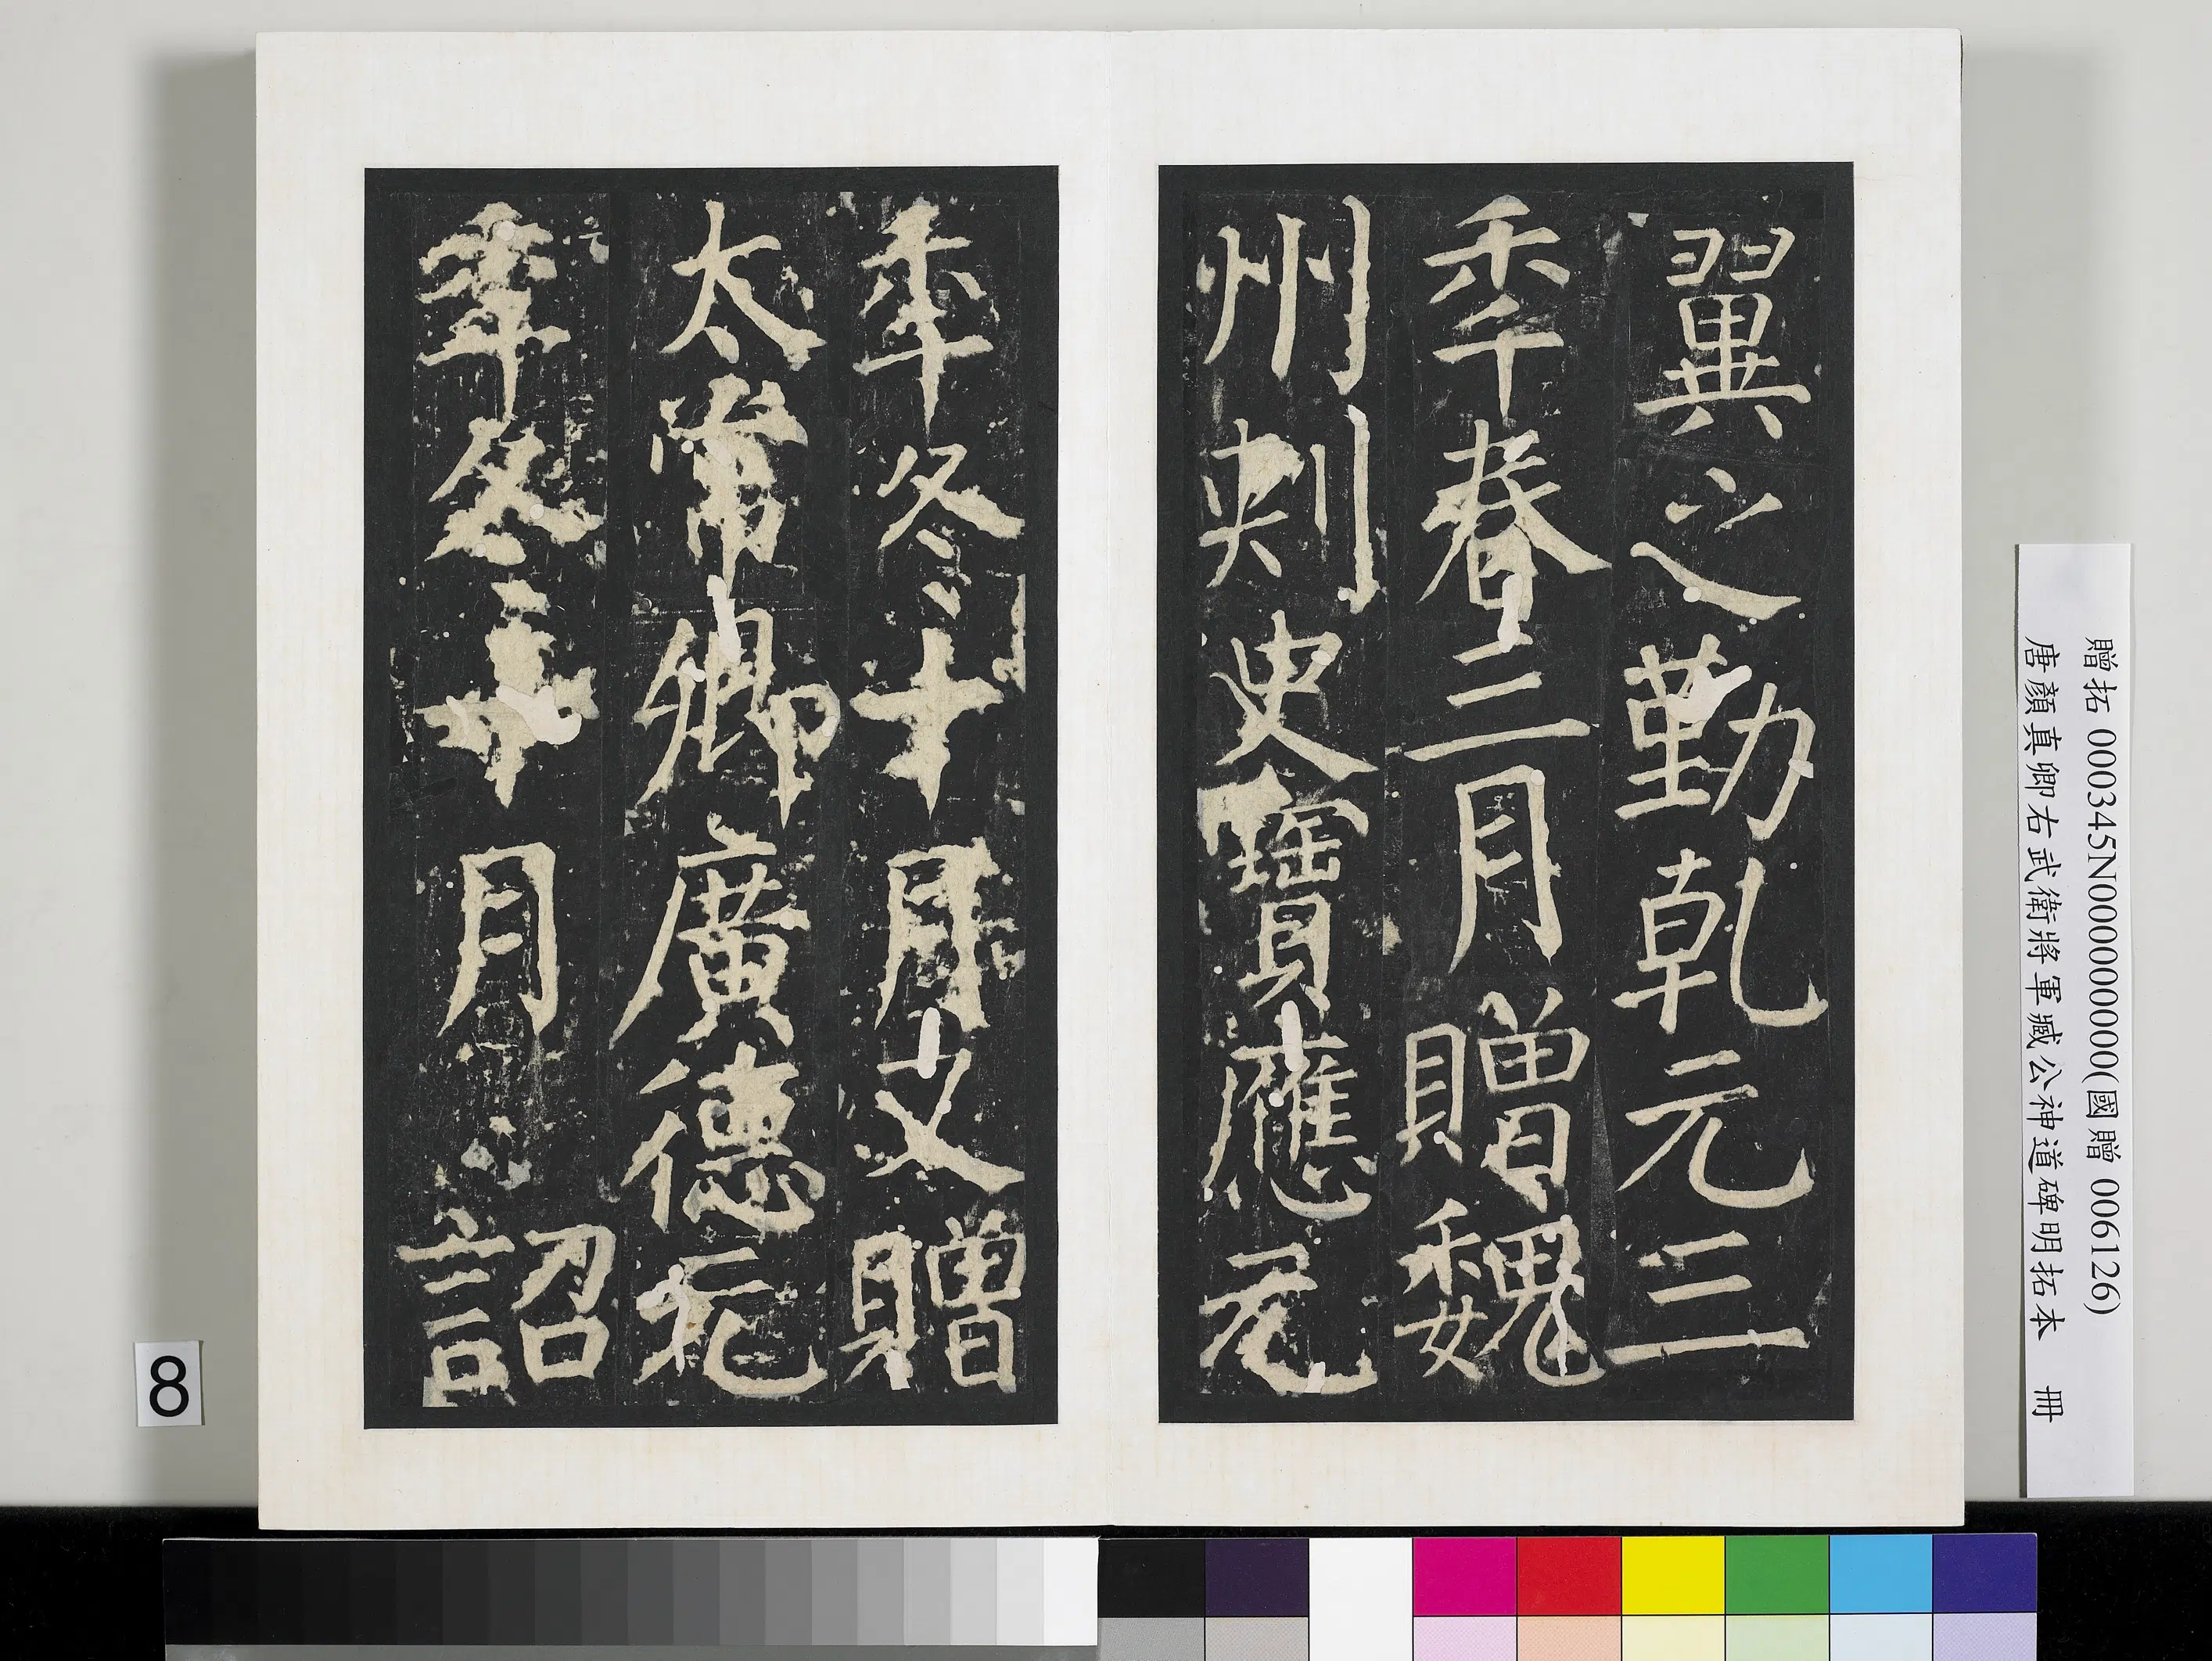 翼之勤乾元三
秊春三月贈魏
州刾史寶應元
秊冬十月又贈
太常卿廣德元
秊冬十月 詔
贈拓 000345N000000000(國贈 006126)
唐顏真卿右武衛將軍臧公神道碑明拓本 冊
8